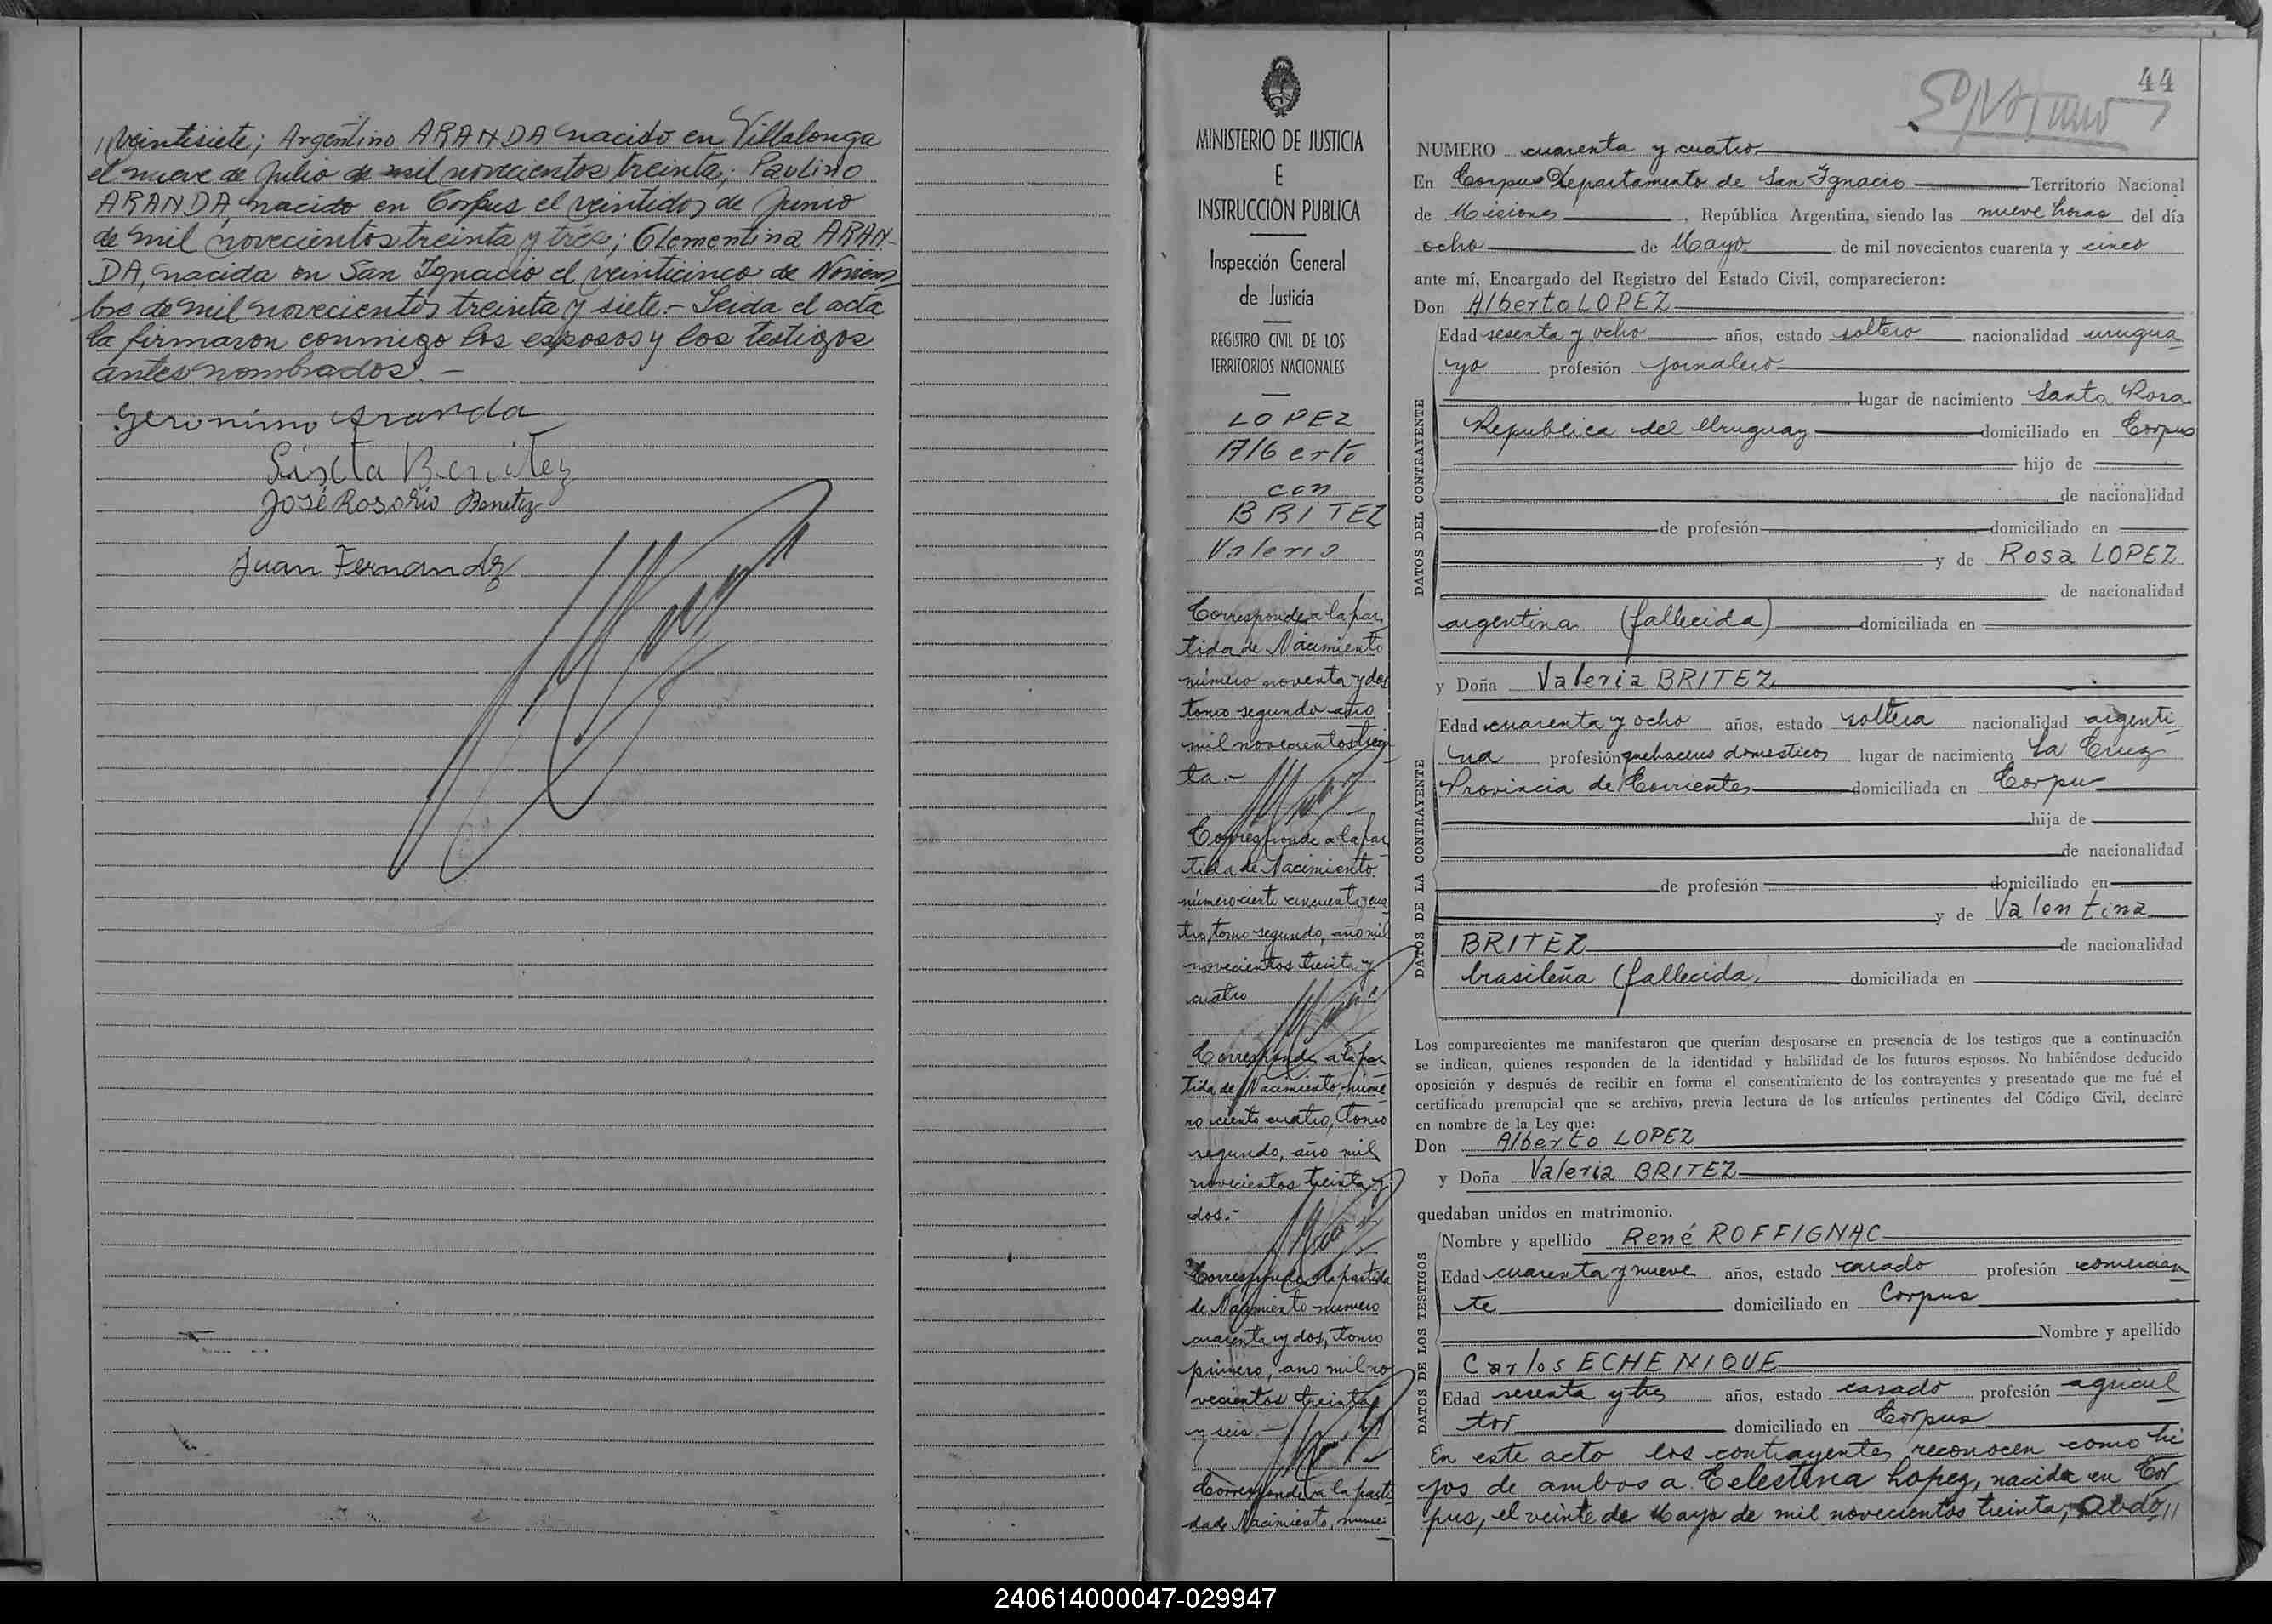 // veintisiete; Argentino ARANDA nacido en Villalonga
el nueve de Julio de mil novecientos treinta; Paulino
ARANDA, nacido en Corpus el veintidos de Junio
de mil novecientos treinta y tres; Clementina ARAN-
DA, nacida en San Ignacio el veinticinco de Noviem
bre de mil novecientos treinta y siete.- Leida el acta
la firmaron conmigo los esposos y los testigos
antes nombrados.-
Geronimo Aranda
Sixta Benitez
José Rosorio Benitez
Juan Fernandz
MINISTERIO DE JUSTICIA
E
INSTRUCCIÓN PUBLICA
Inspección General
de Justicia
REGISTRO CIVIL DE LOS
TERRITORIOS NACIONALES
LOPEZ
Alberto
con
BRITEZ
Valeria
Corresponde a la par
tida de Nacimiento
número noventa y dos
tomo segundo año
mil novecientos trein
ta.-
Corresponde a la par
tida de Nacimiento
número ciento cincuenta y cua
tro, tomo segundo, año mil
novecientos treinta y
cuatro
Corresponde a la par
tida de Nacimiento, núme
ro ciento cuatro, tomo
segundo, año mil
novecientos treinta y
dos.-
Corresponde a la partida
de Nacimiento numero
cuarenta y dos, tomo
primero, año mil no
vecientos treinta
y seis.-
Corresponde a la parti
da de Nacimiento, nume
44
NUMERO cuarenta y cuatro
En Corpus Departamento de San Ignacio Territorio Nacional
de Misiones, República Argentina, siendo las nueve horas del día
ocho de Mayo de mil novecientos cuarenta y cinco
ante mí, Encargado del Registro del Estado Civil, comparecieron:
Don Alberto LOPEZ
DATOS DEL CONTRAYENTE
Edad sesenta y ocho años, estado soltero nacionalidad urugua
yo profesión jornalero
lugar de nacimiento Santa Rosa
Republica del Uruguay domiciliado en Corpus
hijo de
de nacionalidad
de profesión domiciliado en
y de Rosa LOPEZ
de nacionalidad
argentina (fallecida) domiciliada en
y Doña Valeria BRITEZ
DATOS DE LA CONTRAYENTE
Edad cuarenta y ocho años, estado soltera nacionalidad argenti
na profesión quehaceres domesticos lugar de nacimiento La Cruz
Provincia de Corrientes domiciliada en Corpus
hija de
de nacionalidad
de profesión domiciliado en
y de Valentina
BRITEZ de nacionalidad
brasileña (fallecida domiciliada en
Los comparecientes me manifestaron que querían desposarse en presencia de los testigos que a continuación
se indican, quienes responden de la identidad y habilidad de los futuros esposos. No habiéndose deducido
oposición y después de recibir en forma el consentimiento de los contrayentes y presentado que me fué el
certificado prenupcial que se archiva, previa lectura de los artículos pertinentes del Código Civil, declaré
en nombre de la Ley que:
Don Alberto LOPEZ
y Doña Valeria BRITEZ
quedaban unidos en matrimonio.
DATOS DE LOS TESTIGOS
Nombre y apellido René ROFFIGNAC
Edad cuarenta y nueve años, estado casado profesión comercian
te domiciliado en Corpus
Nombre y apellido
Carlos ECHENIQUE
Edad sesenta y tres años, estado casado profesión agricul
tor domiciliado en Corpus
En este acto los contrayentes reconocen como hi
jos de ambos a Celestina Lopez, nacida en Cor
pus, el veinte de Mayo de mil novecientos treinta; Abdo, //
240614000047-029947